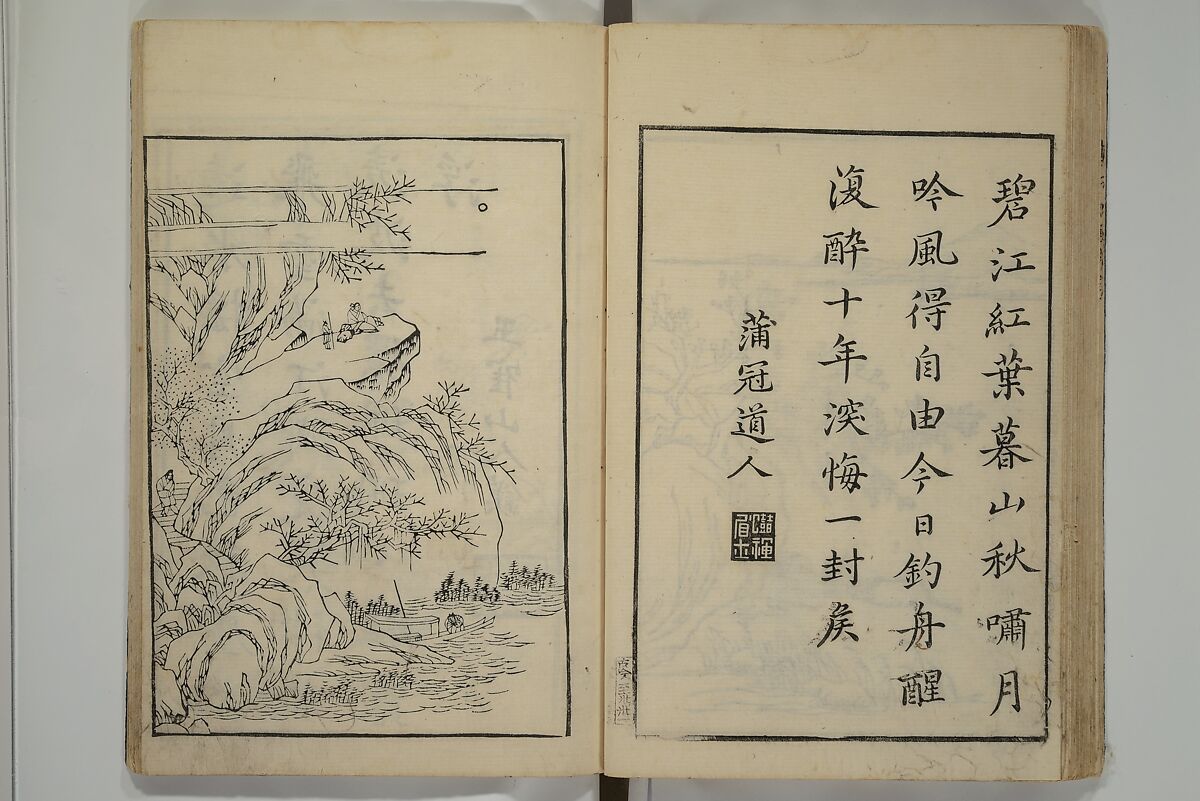 碧江紅葉暮山秋嘯月
吟風得自由今日釣舟醒
復酔十年深悔一封矦
蒲冠道人